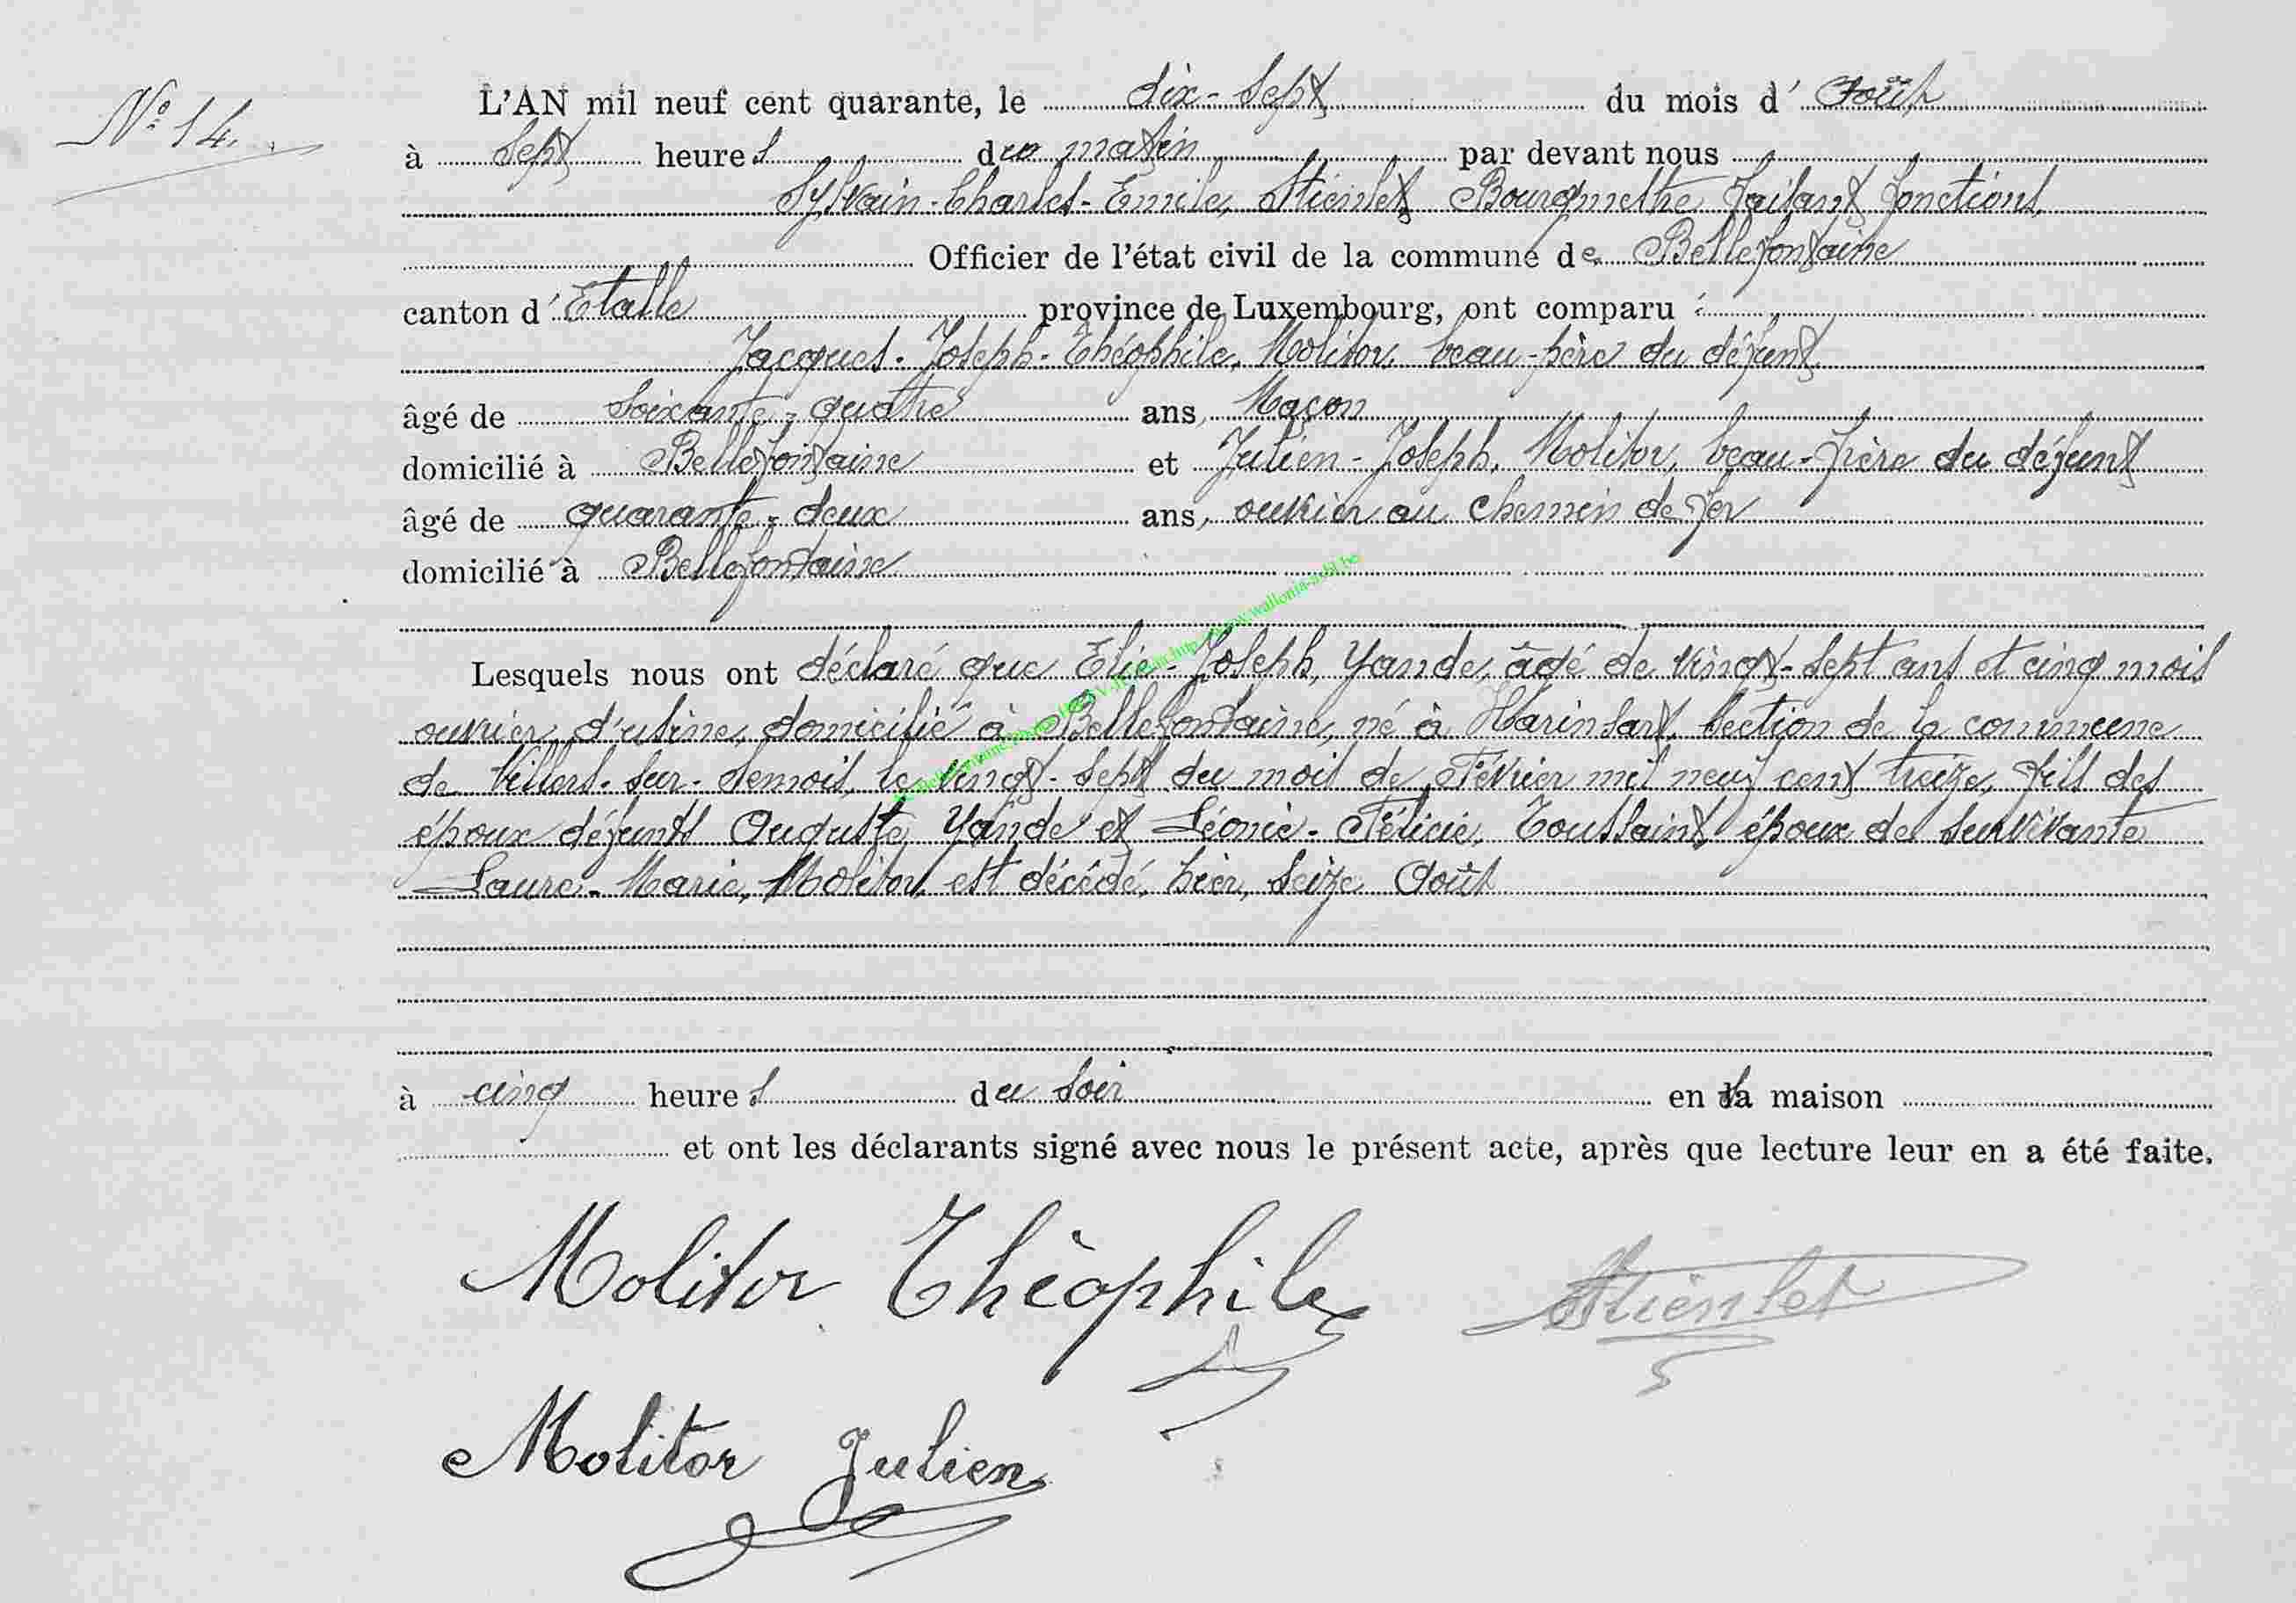 N° 14.
L'AN mil neuf cent quarante, le dix-sept du mois d' Août
à sept heures du matin par devant nous
Sylvain-Charles-Emile, Stienlet, Bourgmestre faisant fonctions,
Officier de l'état civil de la commune de Bellefontaine
canton d' Etalle province de Luxembourg, ont comparu :
Jacques-Joseph-Théophile, Molitor, beau-père du défunt
âgé de soixante-quatre ans, Maçon
domicilié à Bellefontaine et Julien-Joseph, Molitor, beau-frère du défunt
âgé de quarante-deux ans, ouvrier au chemin de fer
domicilié à Bellefontaine
Lesquels nous ont déclaré que Elie-Joseph, Yande, âgé de vingt-sept ans et cinq mois
ouvrier d'usine, domicilié à Bellefontaine, né à Harinsart, section de la commune
de Villers-sur-Semois, le vingt-sept du mois de Février mil neuf cent treize, fils des
époux défunts Auguste, Yande et Léonie-Félicie, Toussaint, époux de survivante
Laure-Marie, Molitor, est décédé, hier, seize Août
à cinq heures du soir en sa maison
et ont les déclarants signé avec nous le présent acte, après que lecture leur en a été faite.
Molitor Théophile Stienlet
Molitor Julien